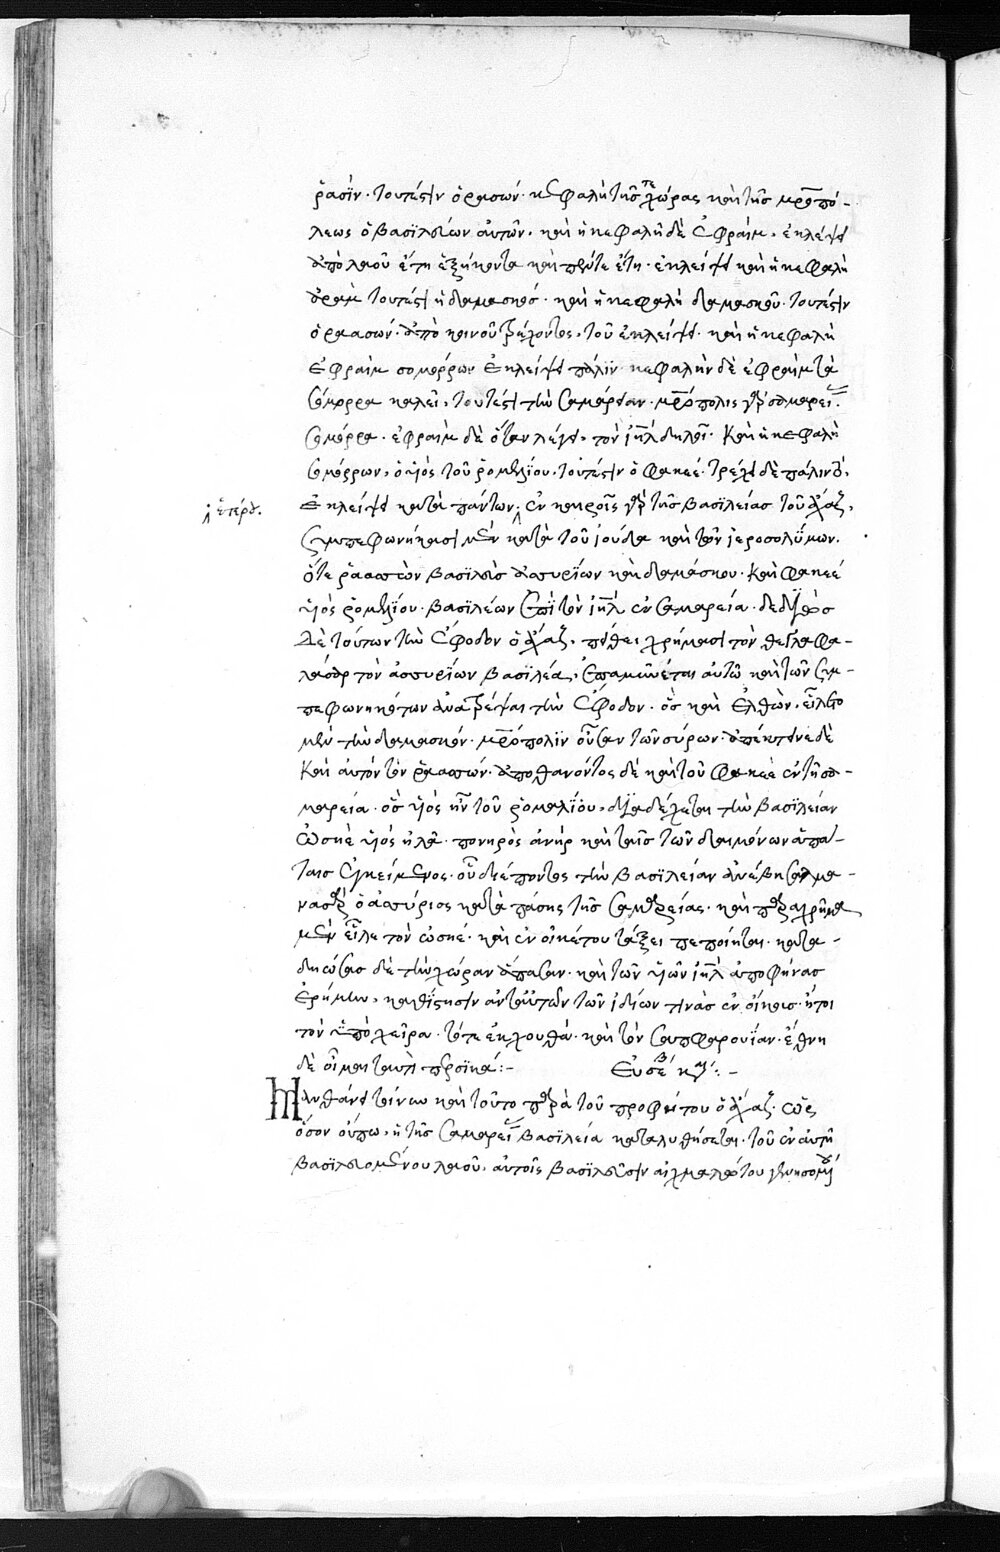 ῥασίν· τουτέστιν ὁ ρασών· κεφαλὴ τῆς τε χώρας καὶ τῆς μροπό-
λεως ὁ βασιλεύων αὐτῶν· καὶ ἡ κεφαλὴ δὲ ἐφραὶμ, ἐκλείψει
ἀπὸ λαοῦ ἔτη ἑξήκοντα καὶ πέντε ἔτη· ἐκλείψει καὶ ἡ κεφαλὴ
ἀρὰμ τουτέστιν ἡ δαμασκός· καὶ ἡ κεφαλὴ δαμασκοῦ· τουτέστιν
ὁ ραασών· ἀπὸ κοινοῦ τρέχοντος, τοῦ ἐκλείψει· καὶ ἡ κεφαλὴ
ἐφραὶμ σομόρρων ἐκλείψει πάλιν· κεφαλὴν δὲ ἐφραὶμ τὰ
σόμορρα καλεῖ, τουτέστι τὴν σαμάρειαν· μρόπολις γὰρ σαμαρεί
σομόρρα· ἐφραὶμ δὲ ὅταν λέγει, τὸν ιηλ δηλοῖ· καὶ ἡ κεφαλὴ
σομόρρων, ὁ υἱὸς τοῦ ῥομελίου, τουτέστιν ὁ φακεέ· τρέχει δὲ πάλιν τό,
ἐκλείψει κατὰ πάντων· ἐν καιροῖς γὰρ τῆς βασιλείας τοῦ ἄχαζ,
συμπεφωνήκασι μὲν κατὰ τοῦ ἰούδα καὶ τῶν ἱεροσολύμων.
ὅτε ῥαασσὼν βασιλεὺς ἀσσυρίων καὶ δαμάσκου· καὶ φακεέ
υἱὸς ῥομελίου· βασιλέων ἐπὶ τὸν ιηλ ἐν σαμαρεία· δεδιὼς
δὲ τούτων τὴν ἔφοδον ὁ ἄχαζ, πείθει χρήμασι τὸν θεγλαφα-
λάσαρ τὸν ἀσσυρίων βασιλέα, ἐπαμῦνεται αὐτῶ καὶ τῶν συμ-
πεφωνηκότων ἀνατρέψαι τὴν ἔφοδον· ὃς καὶ ἐλθὼν, εἷλε τὸ
μὲν τὴν δαμασκόν· μρόπολιν οὖσαν τῶν σύρων· ἀπέκτεινε δὲ
καὶ αὐτὸν τὸν ῥαασσών· ἀποθανόντος δὲ καὶ τοῦ φακεὲ ἐν τῆ σα-
μαρεία· ὃς υἱὸς ἦν τοῦ ῥομελίου, διαδέχεται τὴν βασιλείαν
ὠσηὲ υἱὸς ἠλᾶ· πονηρὸς ἀνὴρ καὶ ταῖς τῶν δαιμόνων ἀπά-
ταις ἐγκείμενος· οὗ διέποντος τὴν βασιλείαν ἀνέβη σαλμα-
νασὰρ ὁ ἀσσύριος κατὰ πάσης τῆς σαμαρείας· καὶ παραχρῆμα
μὲν εἷλε τὸν ὠσηέ· καὶ ἐν οἰκέτου τάξει πεποίηται· κατα-
δηώσας δὲ τὴν χώραν ἅπασαν· καὶ τῶν υἱῶν ιηλ ἀποφήνας
ἐρήμην, καθίστησιν ἀντ' αὐτῶν τῶν ἰδίων τινὰς ἐν οἴκοις· ἤτοι
τὸν ὑπὸ χεῖρα· τότε ἐκ χουθά· καὶ τὸν σαπφαρουΐαν· ἔθνη
δὲ οἶμαι ταυτὶ περσικά:-          εὐσεβ καισ:-
Μανθάνει τοίνυν καὶ τοῦτο παρὰ τοῦ προφήτου ὁ ἄχαζ· ὡς
ὅσον οὔπω, ἡ τῆς σαμαρεί βασιλεία καταλυθήσεται· τοῦ ἐν αὐτῆ
βασιλευομένου λαοῦ, αὐτοῖς βασιλεῦσιν αἰχμαλώτου γενησομέ